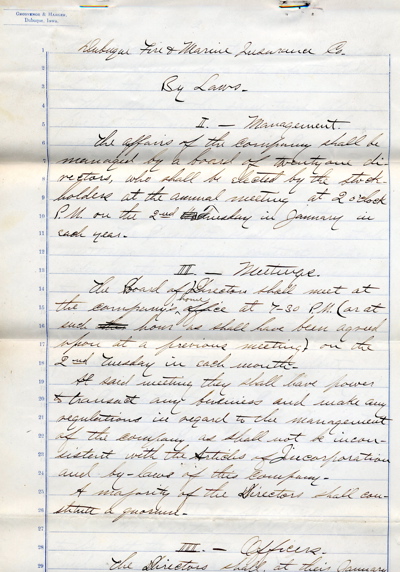 Dubuque Fire & Marine Insurance Co.
By Laws.
II. — Management.
The affairs of the company shall be
managed by a board of twenty one di-
rectors, who shall be elected by the stock
holders at the annual meeting at 2 o'clock
P.M. on the 2nd Tuesday in January in
each year.
III — Meetings.
The Board of Directors shall meet at
the company's home office at 7-30 P.M. (or at
such hour as shall have been agreed
upon at a previous meeting) on the
2nd Tuesday in each month.
At said meeting they shall have power
to transact any business and make any
regulations in regard to the management
of the company as shall not be incon-
sistent with the Articles of Incorporation
and by-laws of this company.
A majority of the Directors shall con-
stitute a quorum.
IIII. — Officers.
The Directors shall, at their January